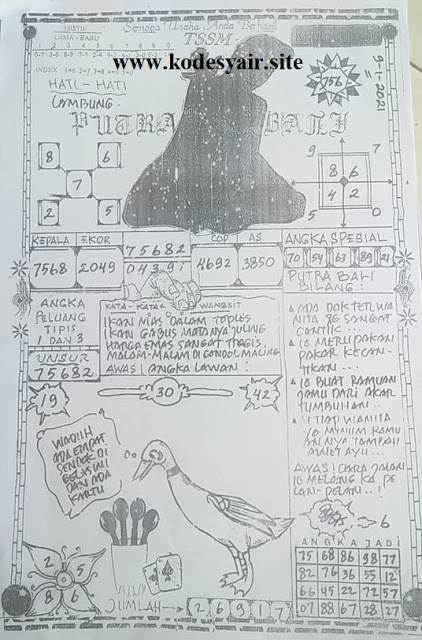 MISTIK
LAMA - BARU
1 2 3 4 5 6 7 8 9 0
INDEX
Semoga Usaha Anda Berhasil
TSSM
www.kodesyair.site
HATI - HATI
GAMBUNG
PUTRA BALI
756
9-1-2021
8 6
7
2 5
9 7
8 6
4 2
5 0
KEPALA EKOR
7568 2049
75682
04397
COP AS
4692 3850
ANGKA SPESIAL
70 54 63 89 21
PUTRA BALI
BILANG:
ANGKA
PELUANG
TIPIS
1 DAN 3
UNSUR
75682
KATA - KATA WANGSIT
IKAN MAS DALAM TOPLES
IKAN GABUS MATANYA JULING
HARGA EMAS SANGAT TRAGIS
MALAM-MALAM DI GONDOL MALING
AWAS! ANGKA LAWAN:
19
30
42
ADA DOKTER WA
NITA YG SANGAT
CANTIK...
IO MERUPAKAN
PAKAR KECAN-
TIKAN...
IO BUAT RAMUAN
JAMU DARI AKAR
TUMBUHAN..
SETIAP WANITA
YG MINUM
NYA TAMBAH
AWET AYU...
WADUH
ADA EMPAT
SENDOK DI
GELAS INI
DAN ADA
KARTU
6
ANGKA JADI
75 68 86 98 77
82 76 36 55 12
66 45 22 72 57
07 88 67 28 27
2 5
8 6
JUMLAH
2 6 9 1 7